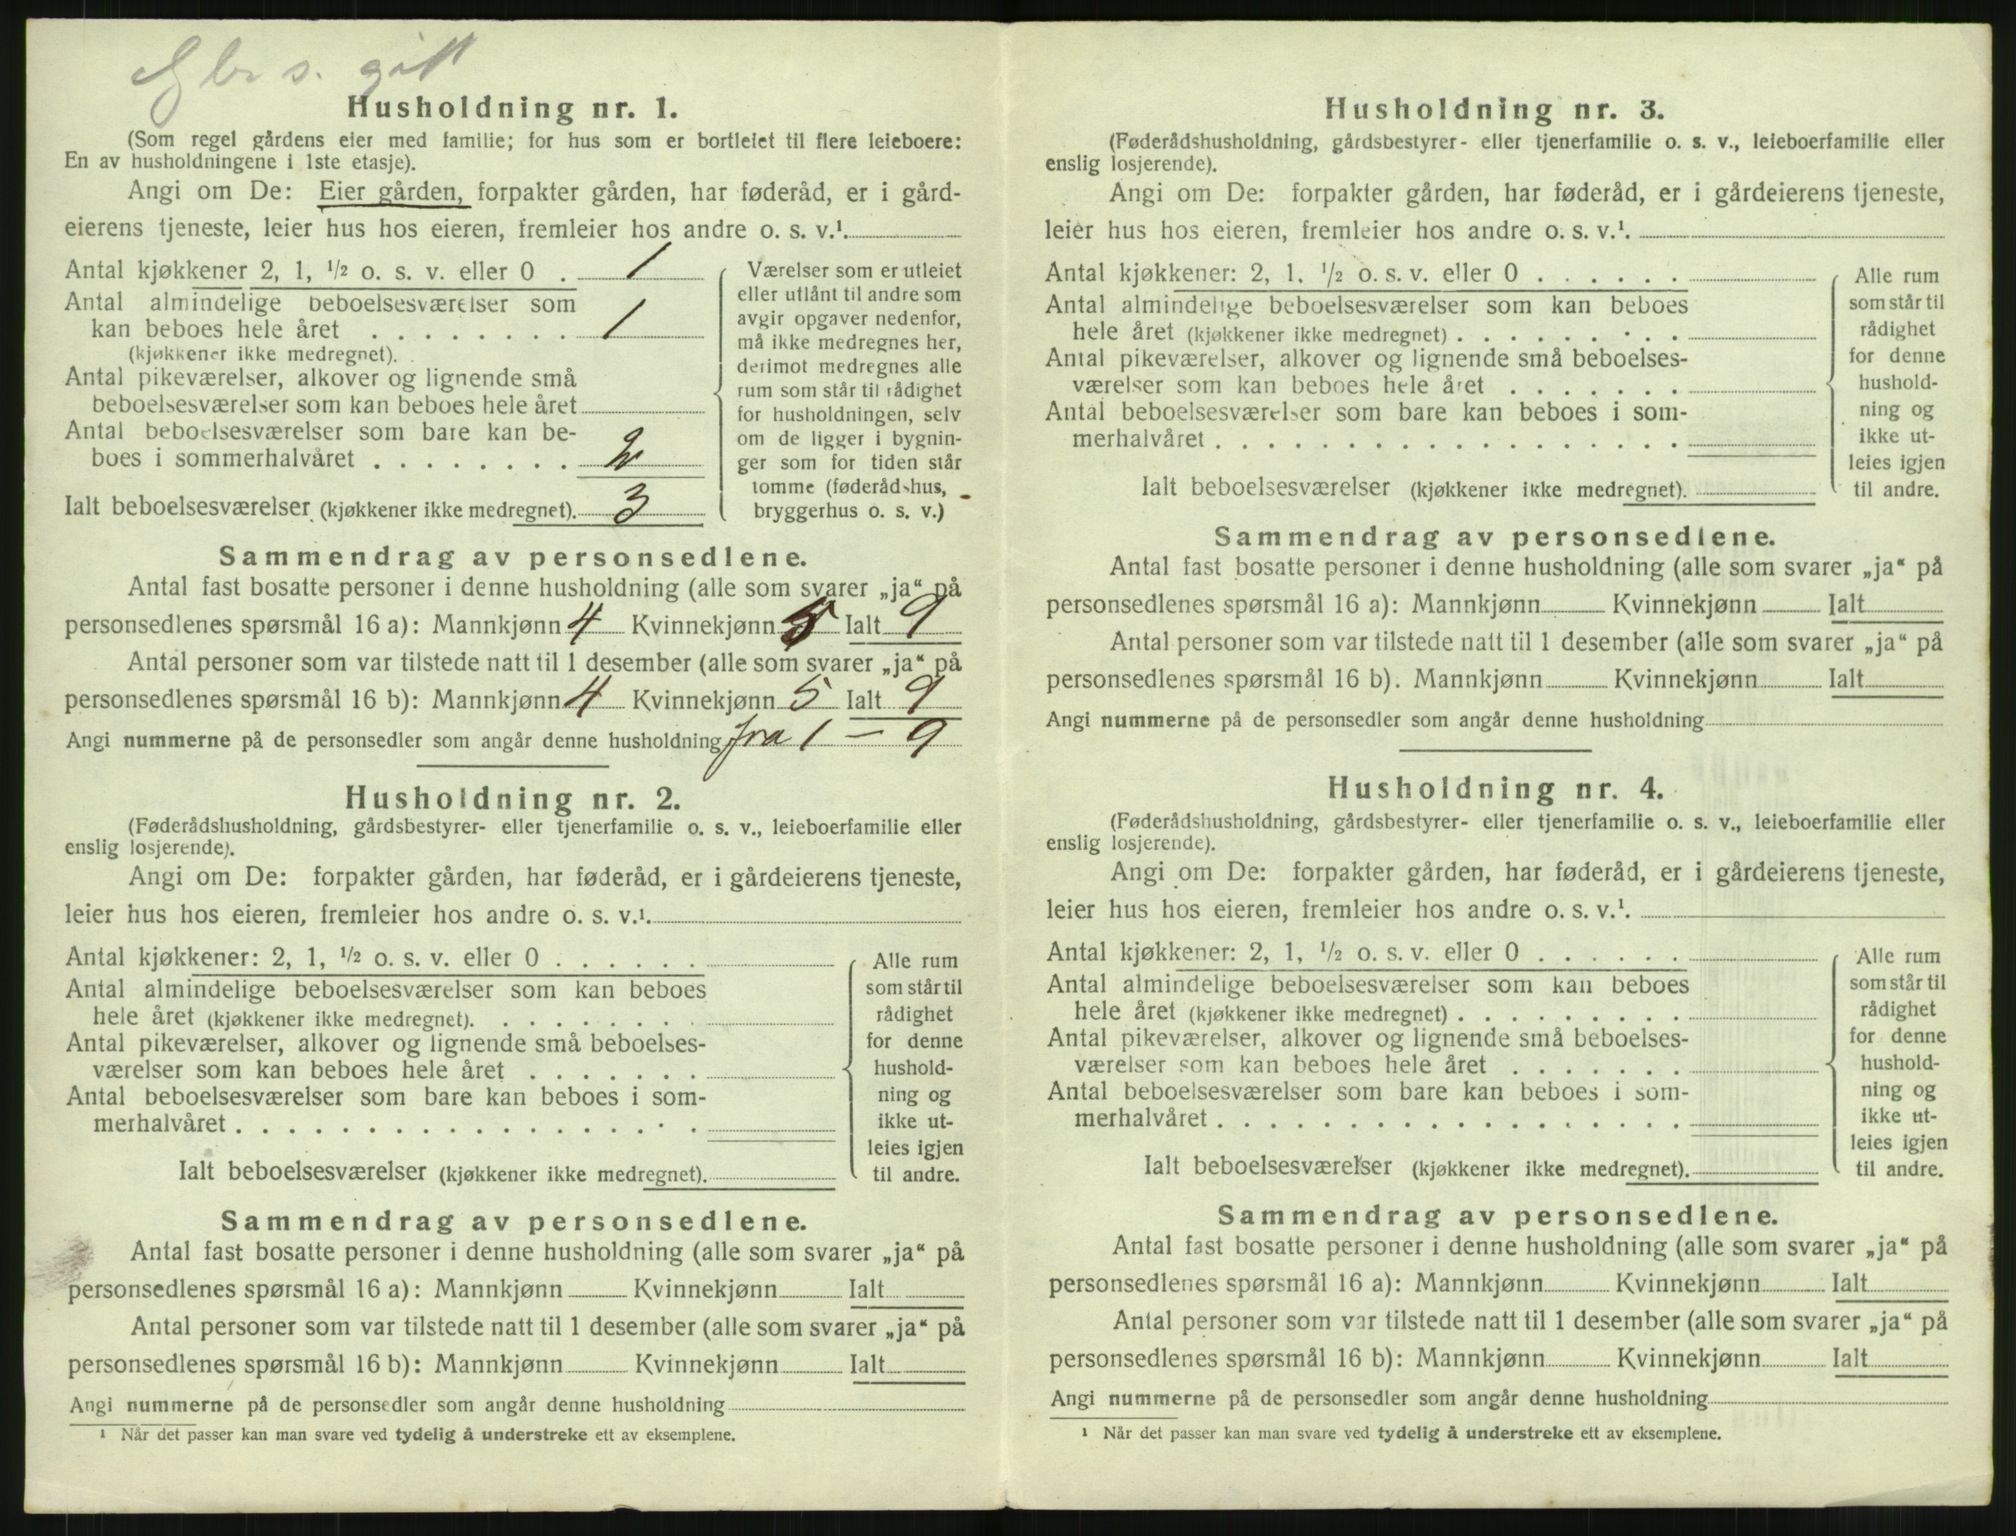 s. gitt
Husholdning nr. 1.
(Som regel gårdens eier med familie; for hus som er bortleiet til flere leieboere:
En av husholdningene i 1ste etasje).
Angi om De: Eier gården, forpakter gården, har føderåd, er i gård-
eierens tjeneste, leier hus hos eieren, fremleier hos andre o. s. v.¹
Antal kjøkkener 2, 1, ½ o. s. v. eller 0 . 1
Antal almindelige beboelsesværelser som
kan beboes hele året . . . . . . . . 1
(kjøkkener ikke medregnet).
Antal pikeværelser, alkover og lignende små
beboelsesværelser som kan beboes hele året
Antal beboelsesværelser som bare kan be-
boes i sommerhalvåret . . . . . . . . 2
Ialt beboelsesværelser (kjøkkener ikke medregnet). 3
Værelser som er utleiet
eller utlånt til andre som
avgir opgaver nedenfor,
må ikke medregnes her,
derimot medregnes alle
rum som står til rådighet
for husholdningen, selv
om de ligger i bygnin-
ger som for tiden står
tomme (føderådshus,
bryggerhus o. s. v.)
Sammendrag av personsedlene.
Antal fast bosatte personer i denne husholdning (alle som svarer „ja“ på
personsedlenes spørsmål 16 a): Mannkjønn 4 Kvinnekjønn 5 Ialt 9
Antal personer som var tilstede natt til 1 desember (alle som svarer „ja“ på
personsedlenes spørsmål 16 b): Mannkjønn 4 Kvinnekjønn 5 Ialt 9
Angi nummerne på de personsedler som angår denne husholdning fra 1 – 9
Husholdning nr. 2.
(Føderådshusholdning, gårdsbestyrer- eller tjenerfamilie o. s. v., leieboerfamilie eller
enslig losjerende).
Angi om De: forpakter gården, har føderåd, er i gårdeierens tjeneste,
leier hus hos eieren, fremleier hos andre o. s. v.¹
Antal kjøkkener: 2, 1, ½ o. s. v. eller 0 . . . . . .
Antal almindelige beboelsesværelser som kan beboes
hele året (kjøkkener ikke medregnet). . . . . . . . .
Antal pikeværelser, alkover og lignende små beboelses-
værelser som kan beboes hele året . . . . . . .
Antal beboelsesværelser som bare kan beboes i som-
merhalvåret . . . . . . . . . . . . . . . . . .
Ialt beboelsesværelser (kjøkkener ikke medregnet).
Alle rum
som står til
rådighet
for denne
hushold-
ning og
ikke ut-
leies igjen
til andre.
Sammendrag av personsedlene.
Antal fast bosatte personer i denne husholdning (alle som svarer „ja“ på
personsedlenes spørsmål 16 a): Mannkjønn Kvinnekjønn Ialt
Antal personer som var tilstede natt til 1 desember (alle som svarer „ja“ på
personsedlenes spørsmål 16 b): Mannkjønn Kvinnekjønn Ialt
Angi nummerne på de personsedler som angår denne husholdning
¹ Når det passer kan man svare ved tydelig å understreke ett av eksemplene.
Husholdning nr. 3.
(Føderådshusholdning, gårdsbestyrer- eller tjenerfamilie o. s. v., leieboerfamilie eller
enslig losjerende).
Angi om De: forpakter gården, har føderåd, er i gårdeierens tjeneste,
leier hus hos eieren, fremleier hos andre o. s. v.¹
Antal kjøkkener: 2, 1, ½ o. s. v. eller 0 . . . . . .
Antal almindelige beboelsesværelser som kan beboes
hele året (kjøkkener ikke medregnet) . . . . . . . . .
Antal pikeværelser, alkover og lignende små beboelses-
værelser som kan beboes hele året . . . . . . .
Antal beboelsesværelser som bare kan beboes i som-
merhalvåret . . . . . . . . . . . . . . . . . .
Ialt beboelsesværelser (kjøkkener ikke medregnet).
Alle rum
som står til
rådighet
for denne
hushold-
ning og
ikke ut-
leies igjen
til andre.
Sammendrag av personsedlene.
Antal fast bosatte personer i denne husholdning (alle som svarer „ja“ på
personsedlenes spørsmål 16 a): Mannkjønn Kvinnekjønn Ialt
Antal personer som var tilstede natt til 1 desember (alle som svarer „ja“ på
personsedlenes spørsmål 16 b). Mannkjønn Kvinnekjønn Ialt
Angi nummerne på de personsedler som angår denne husholdning
Husholdning nr. 4.
(Føderådshusholdning, gårdsbestyrer- eller tjenerfamilie o. s. v., leieboerfamilie eller
enslig losjerende).
Angi om De: forpakter gården, har føderåd, er i gårdeierens tjeneste,
leier hus hos eieren, fremleier hos andre o. s. v.¹
Antal kjøkkener: 2, 1, ½ o. s. v. eller 0 . . . . . .
Antal almindelige beboelsesværelser som kan beboes
hele året (kjøkkener ikke medregnet) . . . . . . . . .
Antal pikeværelser, alkover og lignende små beboelses-
værelser som kan beboes hele året . . . . . . .
Antal beboelsesværelser som bare kan beboes i som-
merhalvåret . . . . . . . . . . . . . . . . . .
Ialt beboelsesværelser (kjøkkener ikke medregnet).
Alle rum
som står til
rådighet
for denne
hushold-
ning og
ikke ut-
leies igjen
til andre.
Sammendrag av personsedlene.
Antal fast bosatte personer i denne husholdning (alle som svarer „ja“ på
personsedlenes spørsmål 16 a): Mannkjønn Kvinnekjønn Ialt
Antal personer som var tilstede natt til 1 desember (alle som svarer „ja“ på
personsedlenes spørsmål 16 b): Mannkjønn Kvinnekjønn Ialt
Angi nummerne på de personsedler som angår denne husholdning
¹ Når det passer kan man svare ved tydelig å understreke ett av eksemplene.